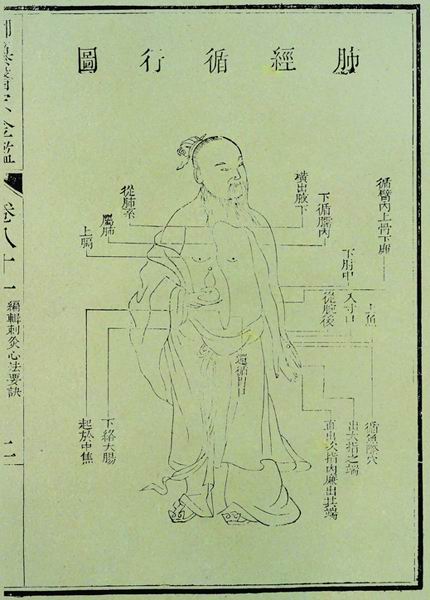 肺經循行圖
循臂內上骨下廉
下循臑內
橫出腋下
從肺系
屬肺
上膈
下肘中
入寸口
上魚
從腕後
還循胃口
循魚際穴
出大指之端
直出次指內廉出其端
下絡大腸
起於中焦
醫宗金鑑
卷八十一
編輯刺灸心法要訣
二